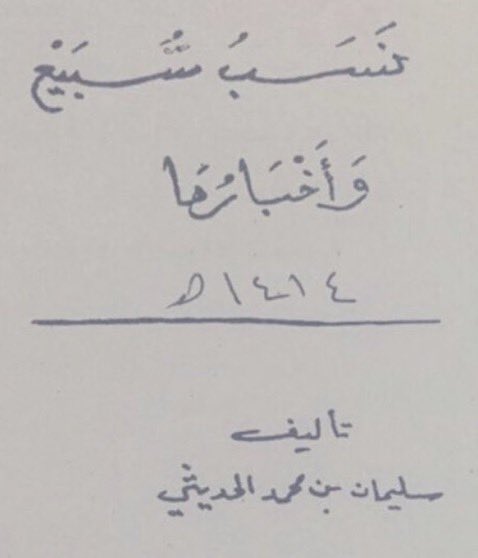 نَسَبُ سُبَيْع
وَأَخْبَارُهَا
١٤١٤ هـ
تأليف
سليمان بن محمد الحديثي